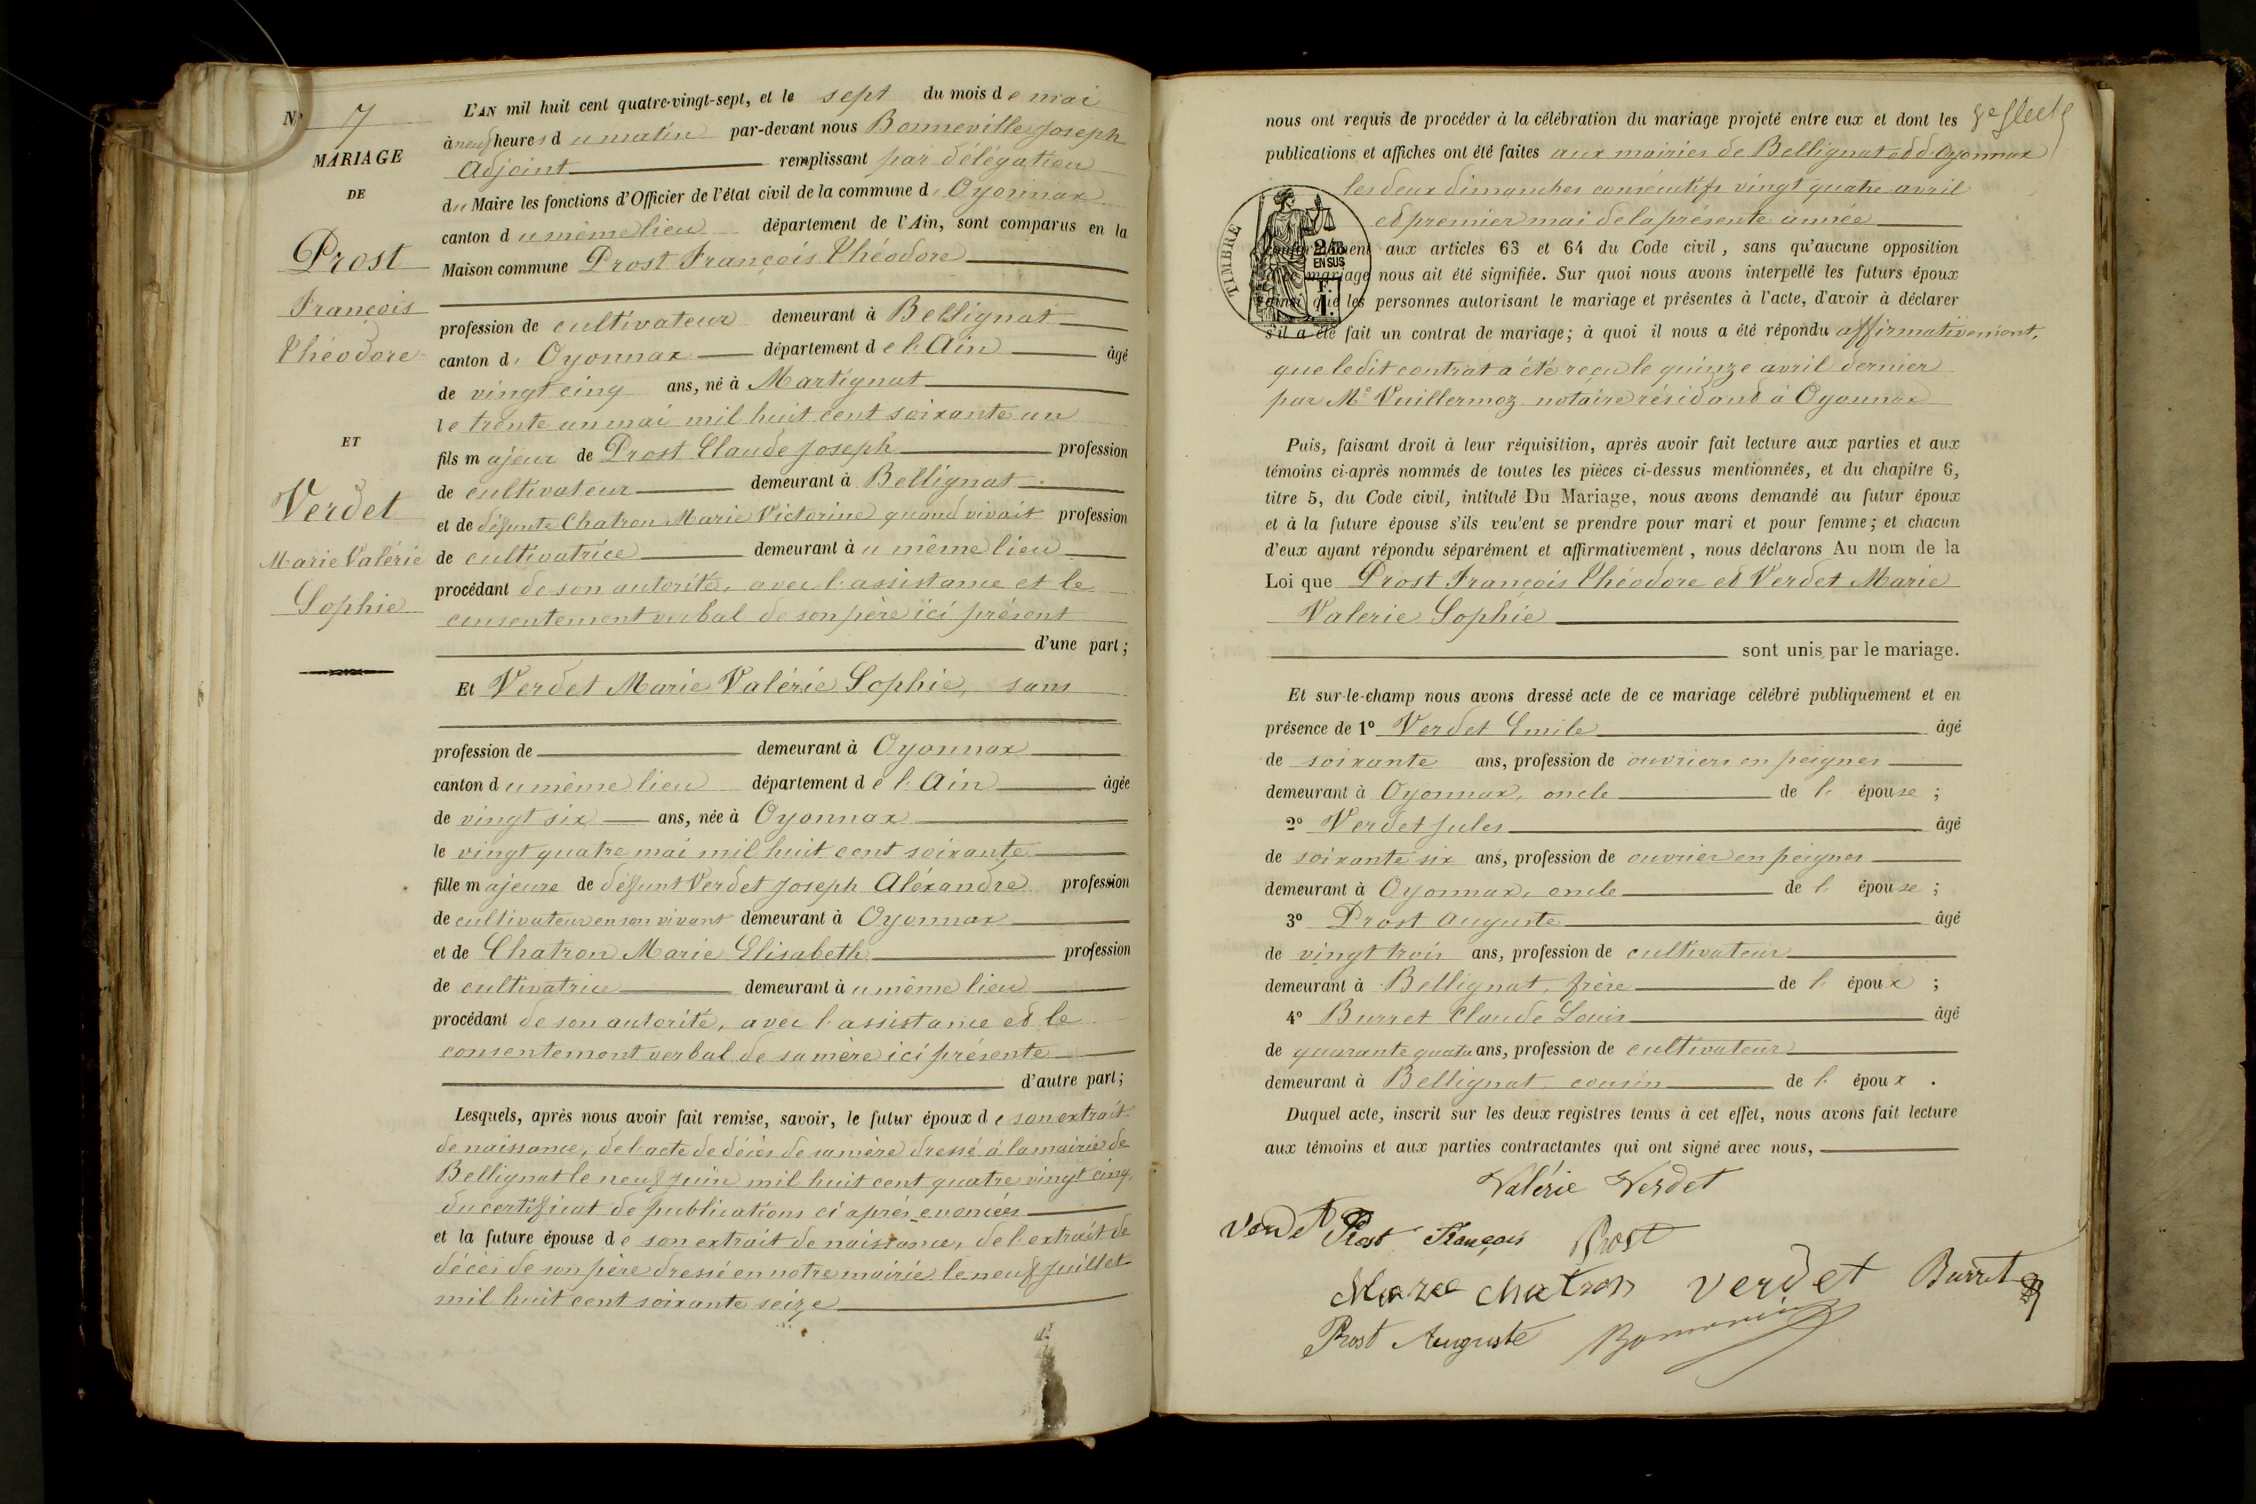 N° 7
MARIAGE
DE
Prost
François
Théodore
ET
Verdet
Marie Valérie
Sophie
L'AN mil huit cent quatre-vingt-sept, et le sept du mois de mai
à neuf heures du matin par-devant nous Bonneville Joseph
Adjoint remplissant par délégation
du Maire les fonctions d'Officier de l'état civil de la commune d'Oyonnax
canton du même lieu département de l'Ain, sont comparus en la
Maison commune Prost François Théodore
profession de cultivateur demeurant à Bellignat
canton d'Oyonnax département de l'Ain âgé
de vingt cinq ans, né à Martignat
le trente un mai mil huit cent soixante un
fils majeur de Prost Claude Joseph profession
de cultivateur demeurant à Bellignat
et de défunte Chatron Marie Victorine quand vivait profession
de cultivatrice demeurant au même lieu
procédant de son autorité, avec l'assistance et le
consentement verbal de son père ici présent
d'une part;
Et Verdet Marie Valérie Sophie, sans
profession de demeurant à Oyonnax
canton du même lieu département de l'Ain âgée
de vingt six ans, née à Oyonnax
le vingt quatre mai mil huit cent soixante
fille majeure de défunt Verdet Joseph Aléxandre profession
de cultivateur en son vivant demeurant à Oyonnax
et de Chatron Marie Elisabeth profession
de cultivatrice demeurant au même lieu
procédant de son autorité, avec l'assistance et le
consentement verbal de sa mère ici présente
d'autre part;
Lesquels, après nous avoir fait remise, savoir, le futur époux de son extrait
de naissance, de l'acte de décès de sa mère dressé à la mairie de
Bellignat le neuf juin mil huit cent quatre vingt cinq,
du certificat de publications ci après énoncées
et la future épouse de son extrait de naissance, de l'extrait de
décès de son père dressé en notre mairie le neuf juillet
mil huit cent soixante seize
nous ont requis de procéder à la célébration du mariage projeté entre eux et dont les
publications et affiches ont été faites aux mairies de Bellignat et d'Oyonnax
les deux dimanches consécutifs vingt quatre avril
et premier mai de la présente année
conformément aux articles 63 et 64 du Code civil, sans qu'aucune opposition
à ce mariage nous ait été signifiée. Sur quoi nous avons interpellé les futurs époux
ainsi que les personnes autorisant le mariage et présentes à l'acte, d'avoir à déclarer
s'il a été fait un contrat de mariage; à quoi il nous a été répondu affirmativement,
que ledit contrat a été reçu le quinze avril dernier
par Me Vuillermoz notaire résidant à Oyonnax
TIMBRE
2/10
EN SUS
F.
1.
Puis, faisant droit à leur réquisition, après avoir fait lecture aux parties et aux
témoins ci-après nommés de toutes les pièces ci-dessus mentionnées, et du chapitre 6,
titre 5, du Code civil, intitulé Du Mariage, nous avons demandé au futur époux
et à la future épouse s'ils veu'ent se prendre pour mari et pour femme; et chacun
d'eux ayant répondu séparément et affirmativement, nous déclarons Au nom de la
Loi que Prost François Théodore et Verdet Marie
Valerie Sophie
sont unis par le mariage.
Et sur-le-champ nous avons dressé acte de ce mariage célébré publiquement et en
présence de 1° Verdet Emile âgé
de soixante ans, profession de ouvrier en peignes
demeurant à Oyonnax, oncle de l'épouse;
2° Verdet Jules âgé
de soixante six ans, profession de ouvrier en peignes
demeurant à Oyonnax, oncle de l'épouse;
3° Prost Auguste âgé
de vingt trois ans, profession de cultivateur
demeurant à Bellignat, frère de l'époux;
4° Burret Claude Louis âgé
de quarante quatre ans, profession de cultivateur
demeurant à Bellignat cousin de l'époux.
Duquel acte, inscrit sur les deux registres tenus à cet effet, nous avons fait lecture
aux témoins et aux parties contractantes qui ont signé avec nous,
Valérie Verdet
Verdet Prost François Prost
Marie Chatron Verdet Burret
Prost Auguste